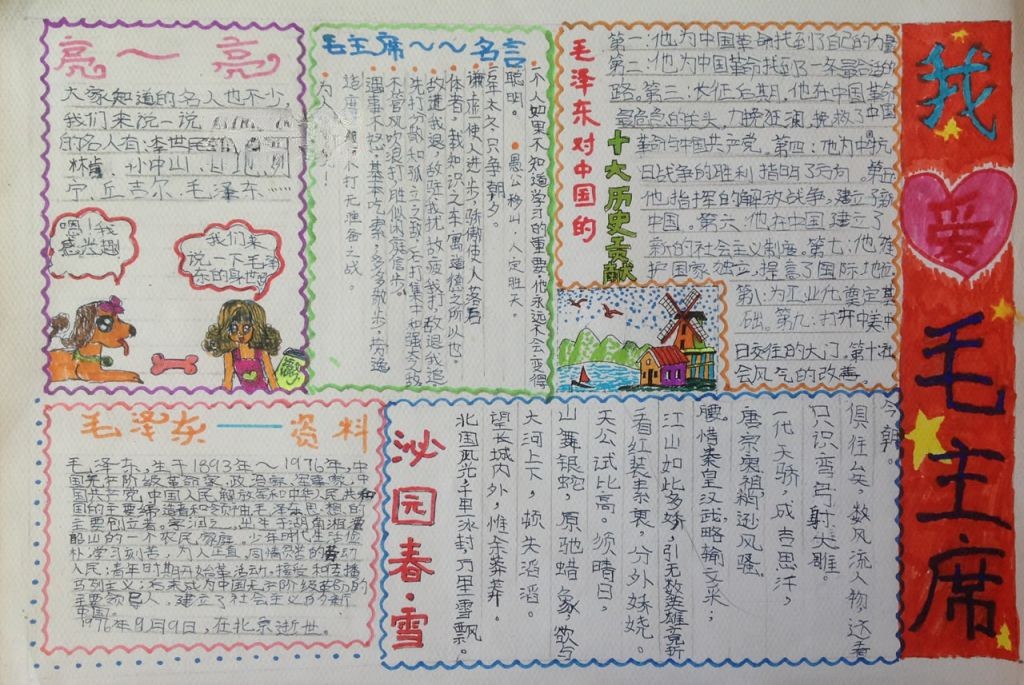 我爱毛主席
亮～亮
大家知道的名人也不少，
我们来说一说
的名人有：李世民
林肯、孙中山、
宁、丘吉尔、毛泽东……
嗯！我
感兴趣
我们来
说一下毛泽
东的身世吧
毛主席～～名言
一个人如果不知道学习的重要，他永远不会变得
聪明。 愚公移山，人定胜天。
一万年太久，只争朝夕。
谦虚使人进步，骄傲使人落后
体者，载知识之车寓道德之所以也。
敌进我退，敌驻我扰，敌疲我打，敌退我追
先打分散和孤立之敌，后打集中和强大之敌
不管风吹浪打，胜似闲庭信步。
遇事不怒，基本吃素，多多散步，劳逸
不打无准备之战。
为人
毛泽东对中国的
十大历史贡献
第一：他为中国革命找到了自己的力量
第二：他为中国革命找到了一条最合适的
路。第三：长征后期，他在中国革命
最危急的关头，力挽狂澜，挽救了中国
革命与中国共产党。第四：他为中抗
日战争的胜利指明了方向。第五
他指挥的解放战争，建立了新
中国。第六：他在中国建立了
新的社会主义制度。第七：他维
护国家独立，提高了国际地位
第八：为工业化奠定基
础。第九：打开中美中
日交往的大门。第十：社
会风气的改善。
毛泽东——资料
毛泽东，生于1893年～1976年，中
国无产阶级革命家、政治家、军事家，中
国共产党，中国人民解放军和中华人民共和
国的主要缔造者和领袖毛泽东思想的
主要创立者。字润之，出生于湖南湘潭
韶山的一个农民家庭。少年时代生活俭
朴学习刻苦，为人正直，同情贫苦的劳动
人民；青年时期开始革活动，接受和传播
马列主义；后来成为中国无产阶级革命的
主要领导人，建立了社会主义的新
中国。
1976年9月9日，在北京逝世。
沁园春·雪
北国风光，千里冰封，万里雪飘。
望长城内外，惟余莽莽。
大河上下，顿失滔滔。
山舞银蛇，原驰蜡象，欲与
天公试比高。须晴日，
看红装素裹，分外妖娆。
江山如此多娇，引无数英雄竞折
腰。惜秦皇汉武，略输文采；
唐宗宋祖，稍逊风骚。
一代天骄，成吉思汗，
只识弯弓射大雕。
俱往矣，数风流人物，还看
今朝。